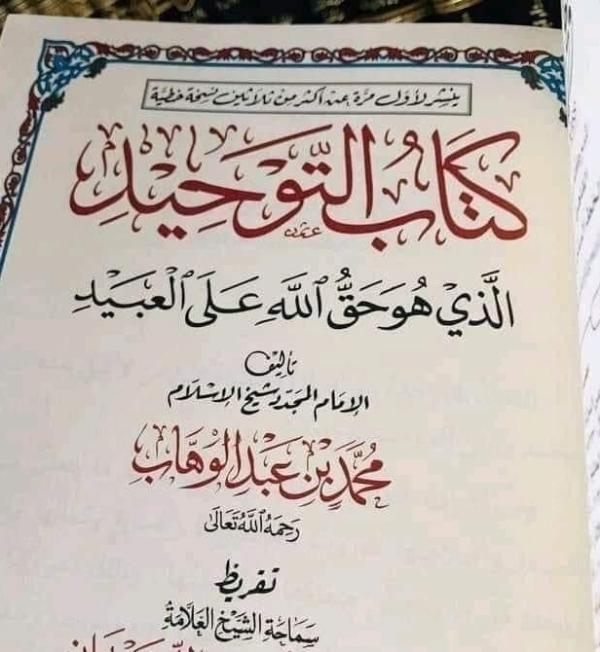 ينشر لأول مرة عن أكثر من ثلاثين نسخة خطية
كِتَابُ التَّوْحِيدِ
الَّذِي هُوَ حَقُّ اللَّهِ عَلَى الْعَبِيدِ
تأليف
الإمام المجدد شيخ الإسلام
مُحَمَّدِ بْنِ عَبْدِ الْوَهَّابِ
رَحِمَهُ اللَّهُ تَعَالَى
تقريظ
سماحة الشيخ العلامة